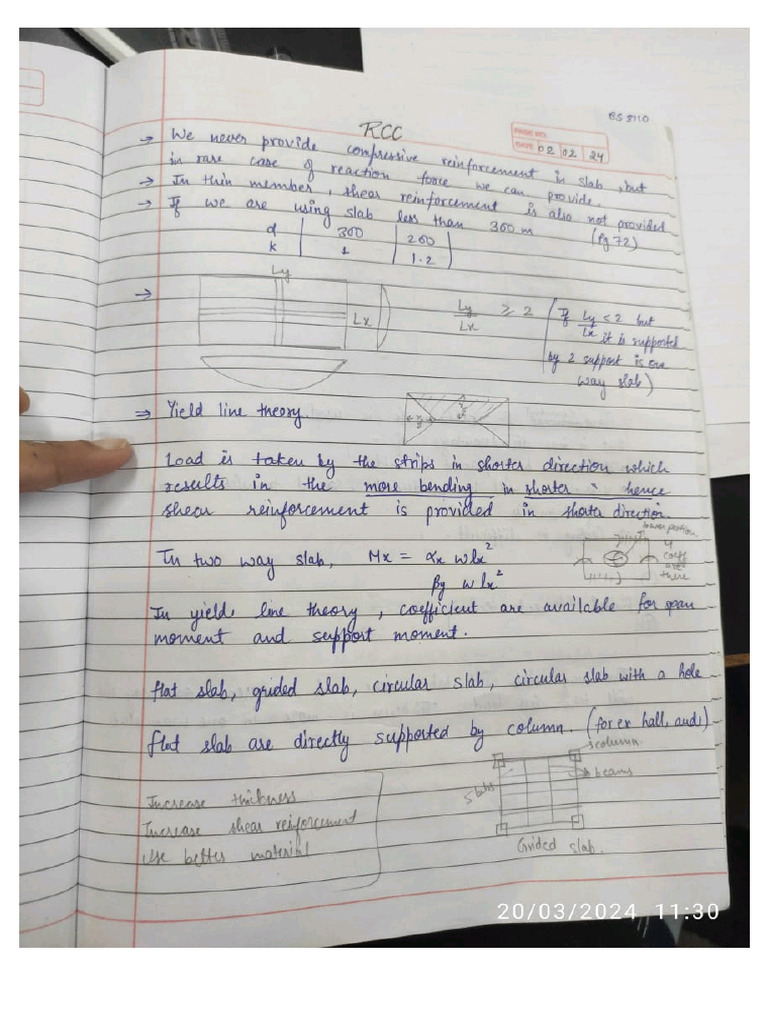 BS 8110
RCC
PAGE NO.
DATE 02 02 24
→ We never provide compressive reinforcement in slab, but
in rare case of reaction force we can provide.
→ In thin member, shear reinforcement is also not provided
→ If we are using slab less than 300 m (Pg 72)
d 300 200
k 1 1.2
→ Ly
Lx
Ly/Lx ≥ 2 (If Ly/Lx < 2 but
it is supported
by 2 support is one
way slab)
⇒ Yield line theory.
Load is taken by the strips in shorter direction which
results in the more bending in shorter hence
shear reinforcement is provided in shorter direction.
lower portion
In two way slab, Mx = αx wlx²
βy wlx²
4
coeff
are
there
In yield line theory, coefficient are available for span
moment and support moment.
flat slab, grided slab, circular slab, circular slab with a hole
flat slab are directly supported by column. (for ex hall, audi)
column
beams
slabs
Grided slab.
Increase thickness
Increase shear reinforcement
Use better material
20/03/2024 11:30